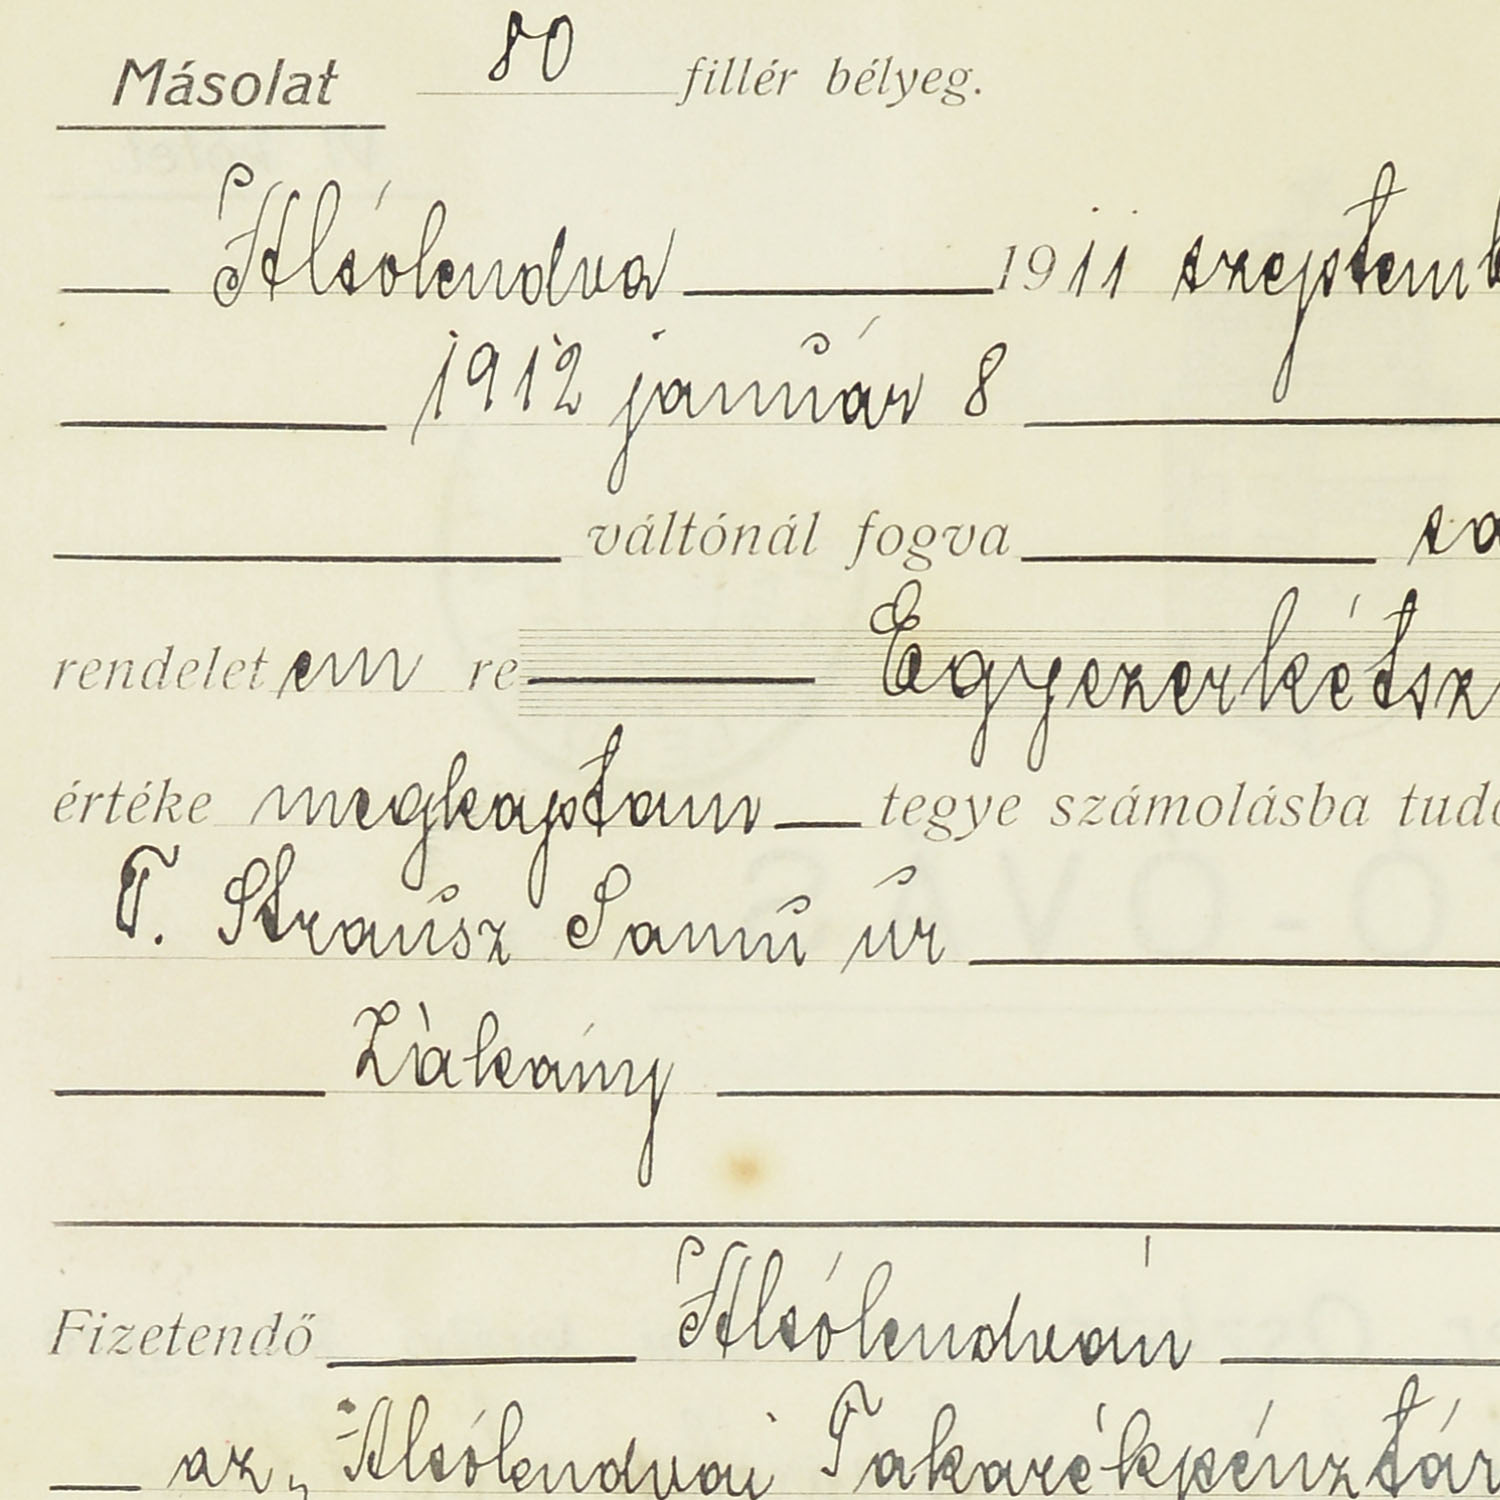 Másolat 80 fillér bélyeg.
Alsólendva 1911 szeptemb
1912 január 8
váltónál fogva
rendelet em re Egyezerkétsz
értéke megkaptam tegye számolásba tudó
T. Strausz Samu úr
Zákány
Fizetendő Alsólendván
az „Alsólendvai Takarékpénztár